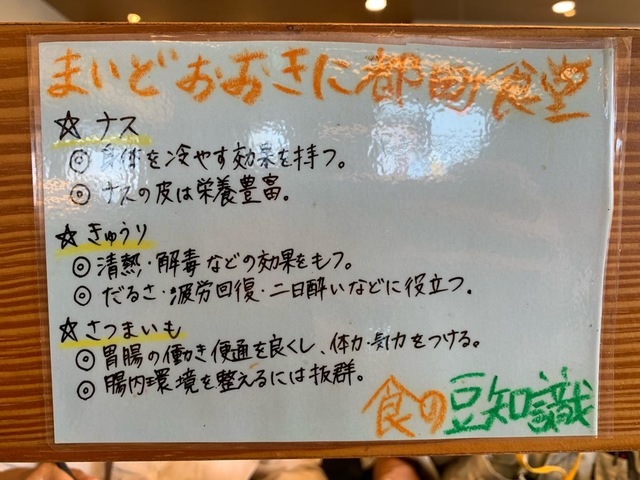 まいどおおきに都町食堂
☆ ナス
◎ 身体を冷やす効果を持つ。
◎ ナスの皮は栄養豊富。
☆ きゅうり
◎ 清熱・解毒などの効果をもつ。
◎ だるさ・疲労回復・二日酔いなどに役立つ。
☆ さつまいも
◎ 胃腸の働き便通を良くし、体力・気力をつける。
◎ 腸内環境を整えるには抜群。
食の豆知識